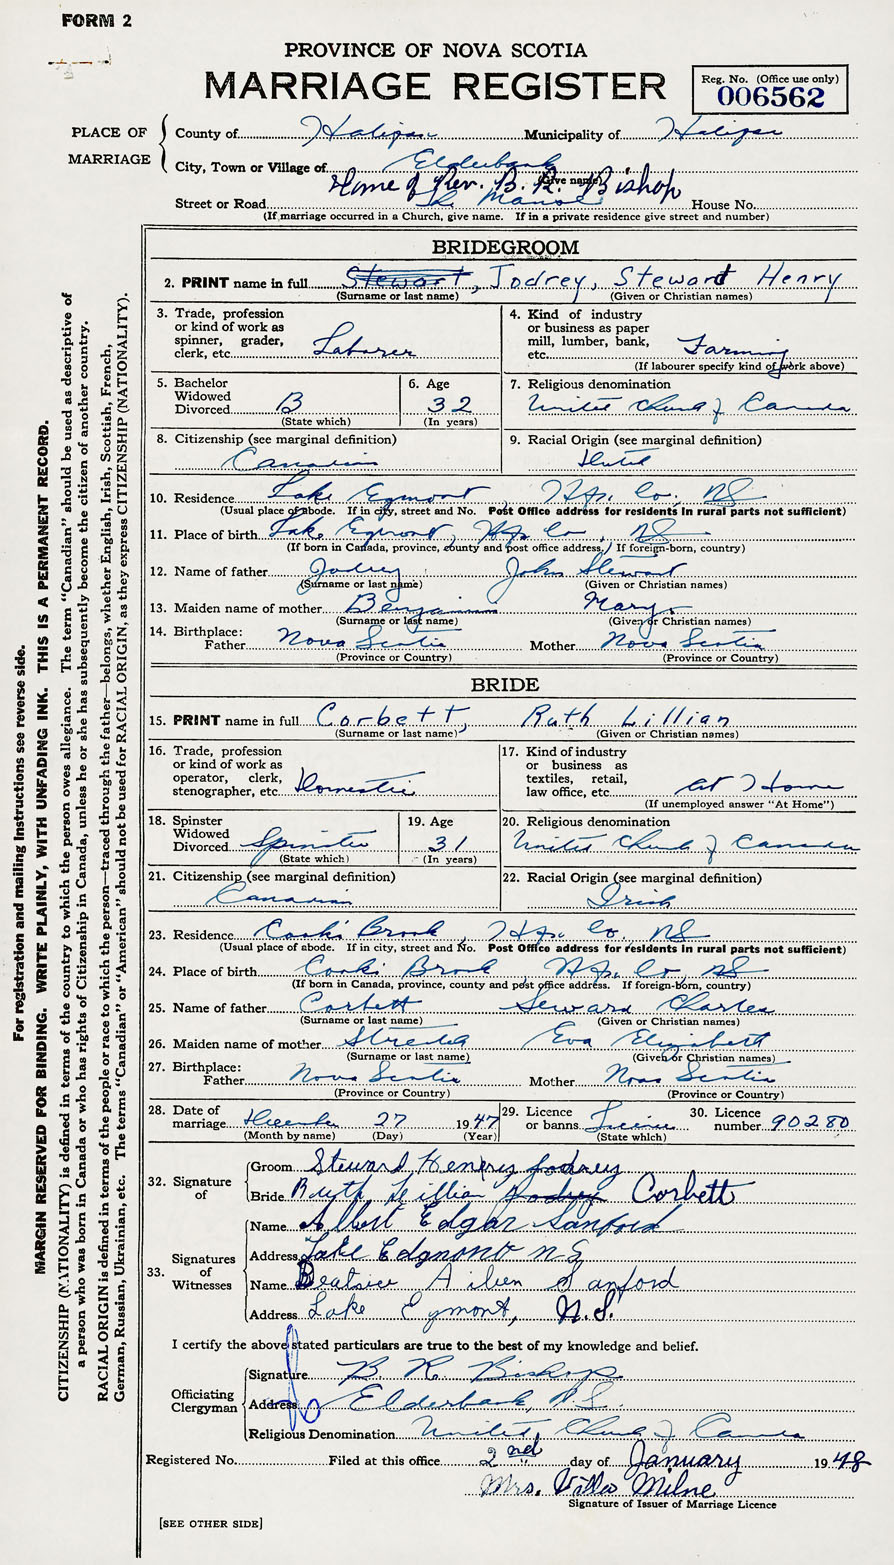 FORM 2
PROVINCE OF NOVA SCOTIA
MARRIAGE REGISTER
Reg. No. (Office use only)
006562
PLACE OF MARRIAGE
County of Halifax Municipality of Halifax
City, Town or Village of Elderbank
(Give name)
Home of Rev. B. R. Bishop
Street or Road The Manse House No.
(If marriage occurred in a Church, give name. If in a private residence give street and number)
BRIDEGROOM
2. PRINT name in full Stewart, Jodrey, Stewart Henry
(Surname or last name) (Given or Christian names)
3. Trade, profession or kind of work as spinner, grader, clerk, etc. Laborer
4. Kind of industry or business as paper mill, lumber, bank, etc. Farming
(If labourer specify kind of work above)
5. Bachelor Widowed Divorced B
(State which)
6. Age 32
(In years)
7. Religious denomination
United Church of Canada
8. Citizenship (see marginal definition)
Canadian
9. Racial Origin (see marginal definition)
Dutch
10. Residence Lake Egmont, Hfx. Co. NS
(Usual place of abode. If in city, street and No. Post Office address for residents in rural parts not sufficient)
11. Place of birth Lake Egmont, Hfx Co, NS
(If born in Canada, province, county and post office address. If foreign-born, country)
12. Name of father Jodrey John Stewart
(Surname or last name) (Given or Christian names)
13. Maiden name of mother Benjamin Mary
(Surname or last name) (Given or Christian names)
14. Birthplace: Father Nova Scotia Mother Nova Scotia
(Province or Country) (Province or Country)
BRIDE
15. PRINT name in full Corbett, Ruth Lillian
(Surname or last name) (Given or Christian names)
16. Trade, profession or kind of work as operator, clerk, stenographer, etc. Domestic
17. Kind of industry or business as textiles, retail, law office, etc. At Home
(If unemployed answer "At Home")
18. Spinster Widowed Divorced Spinster
(State which)
19. Age 31
(In years)
20. Religious denomination
United Church of Canada
21. Citizenship (see marginal definition)
Canadian
22. Racial Origin (see marginal definition)
Irish
23. Residence Cooks Brook, Hfx. Co. NS
(Usual place of abode. If in city, street and No. Post Office address for residents in rural parts not sufficient)
24. Place of birth Cooks Brook, Hfx. Co, NS
(If born in Canada, province, county and post office address. If foreign-born, country)
25. Name of father Corbett Seward Charles
(Surname or last name) (Given or Christian names)
26. Maiden name of mother Eva Elizabeth
(Surname or last name) (Given or Christian names)
27. Birthplace: Father Nova Scotia Mother Nova Scotia
(Province or Country) (Province or Country)
28. Date of marriage December 27 1947
(Month by name) (Day) (Year)
29. Licence or banns License
(State which)
30. Licence number 90280
32. Signature of
Groom Steward Henery Jodrey
Bride Ruth Lillian Jodrey Corbett
33. Signatures of Witnesses
Name Albert Edgar Sanford
Address Lake Edgmont N S
Name Beatrice Aileen Sanford
Address Lake Egmont, N.S.
I certify the above stated particulars are true to the best of my knowledge and belief.
Officiating Clergyman
Signature B. R. Bishop
Address Elderbank, N.S.
Religious Denomination United Church of Canada
Registered No. Filed at this office 2nd day of January 1948
Mrs. Milne
Signature of Issuer of Marriage Licence
[SEE OTHER SIDE]
For registration and mailing instructions see reverse side.
MARGIN RESERVED FOR BINDING. WRITE PLAINLY, WITH UNFADING INK. THIS IS A PERMANENT RECORD.
CITIZENSHIP (NATIONALITY) is defined in terms of the country to which the person owes allegiance. The term "Canadian" should be used as descriptive of
a person who was born in Canada or who has rights of Citizenship in Canada, unless he or she has subsequently become the citizen of another country.
RACIAL ORIGIN is defined in terms of the people or race to which the person—traced through the father—belongs, whether English, Irish, Scottish, French,
German, Russian, Ukrainian, etc. The terms "Canadian" or "American" should not be used for RACIAL ORIGIN, as they express CITIZENSHIP (NATIONALITY).